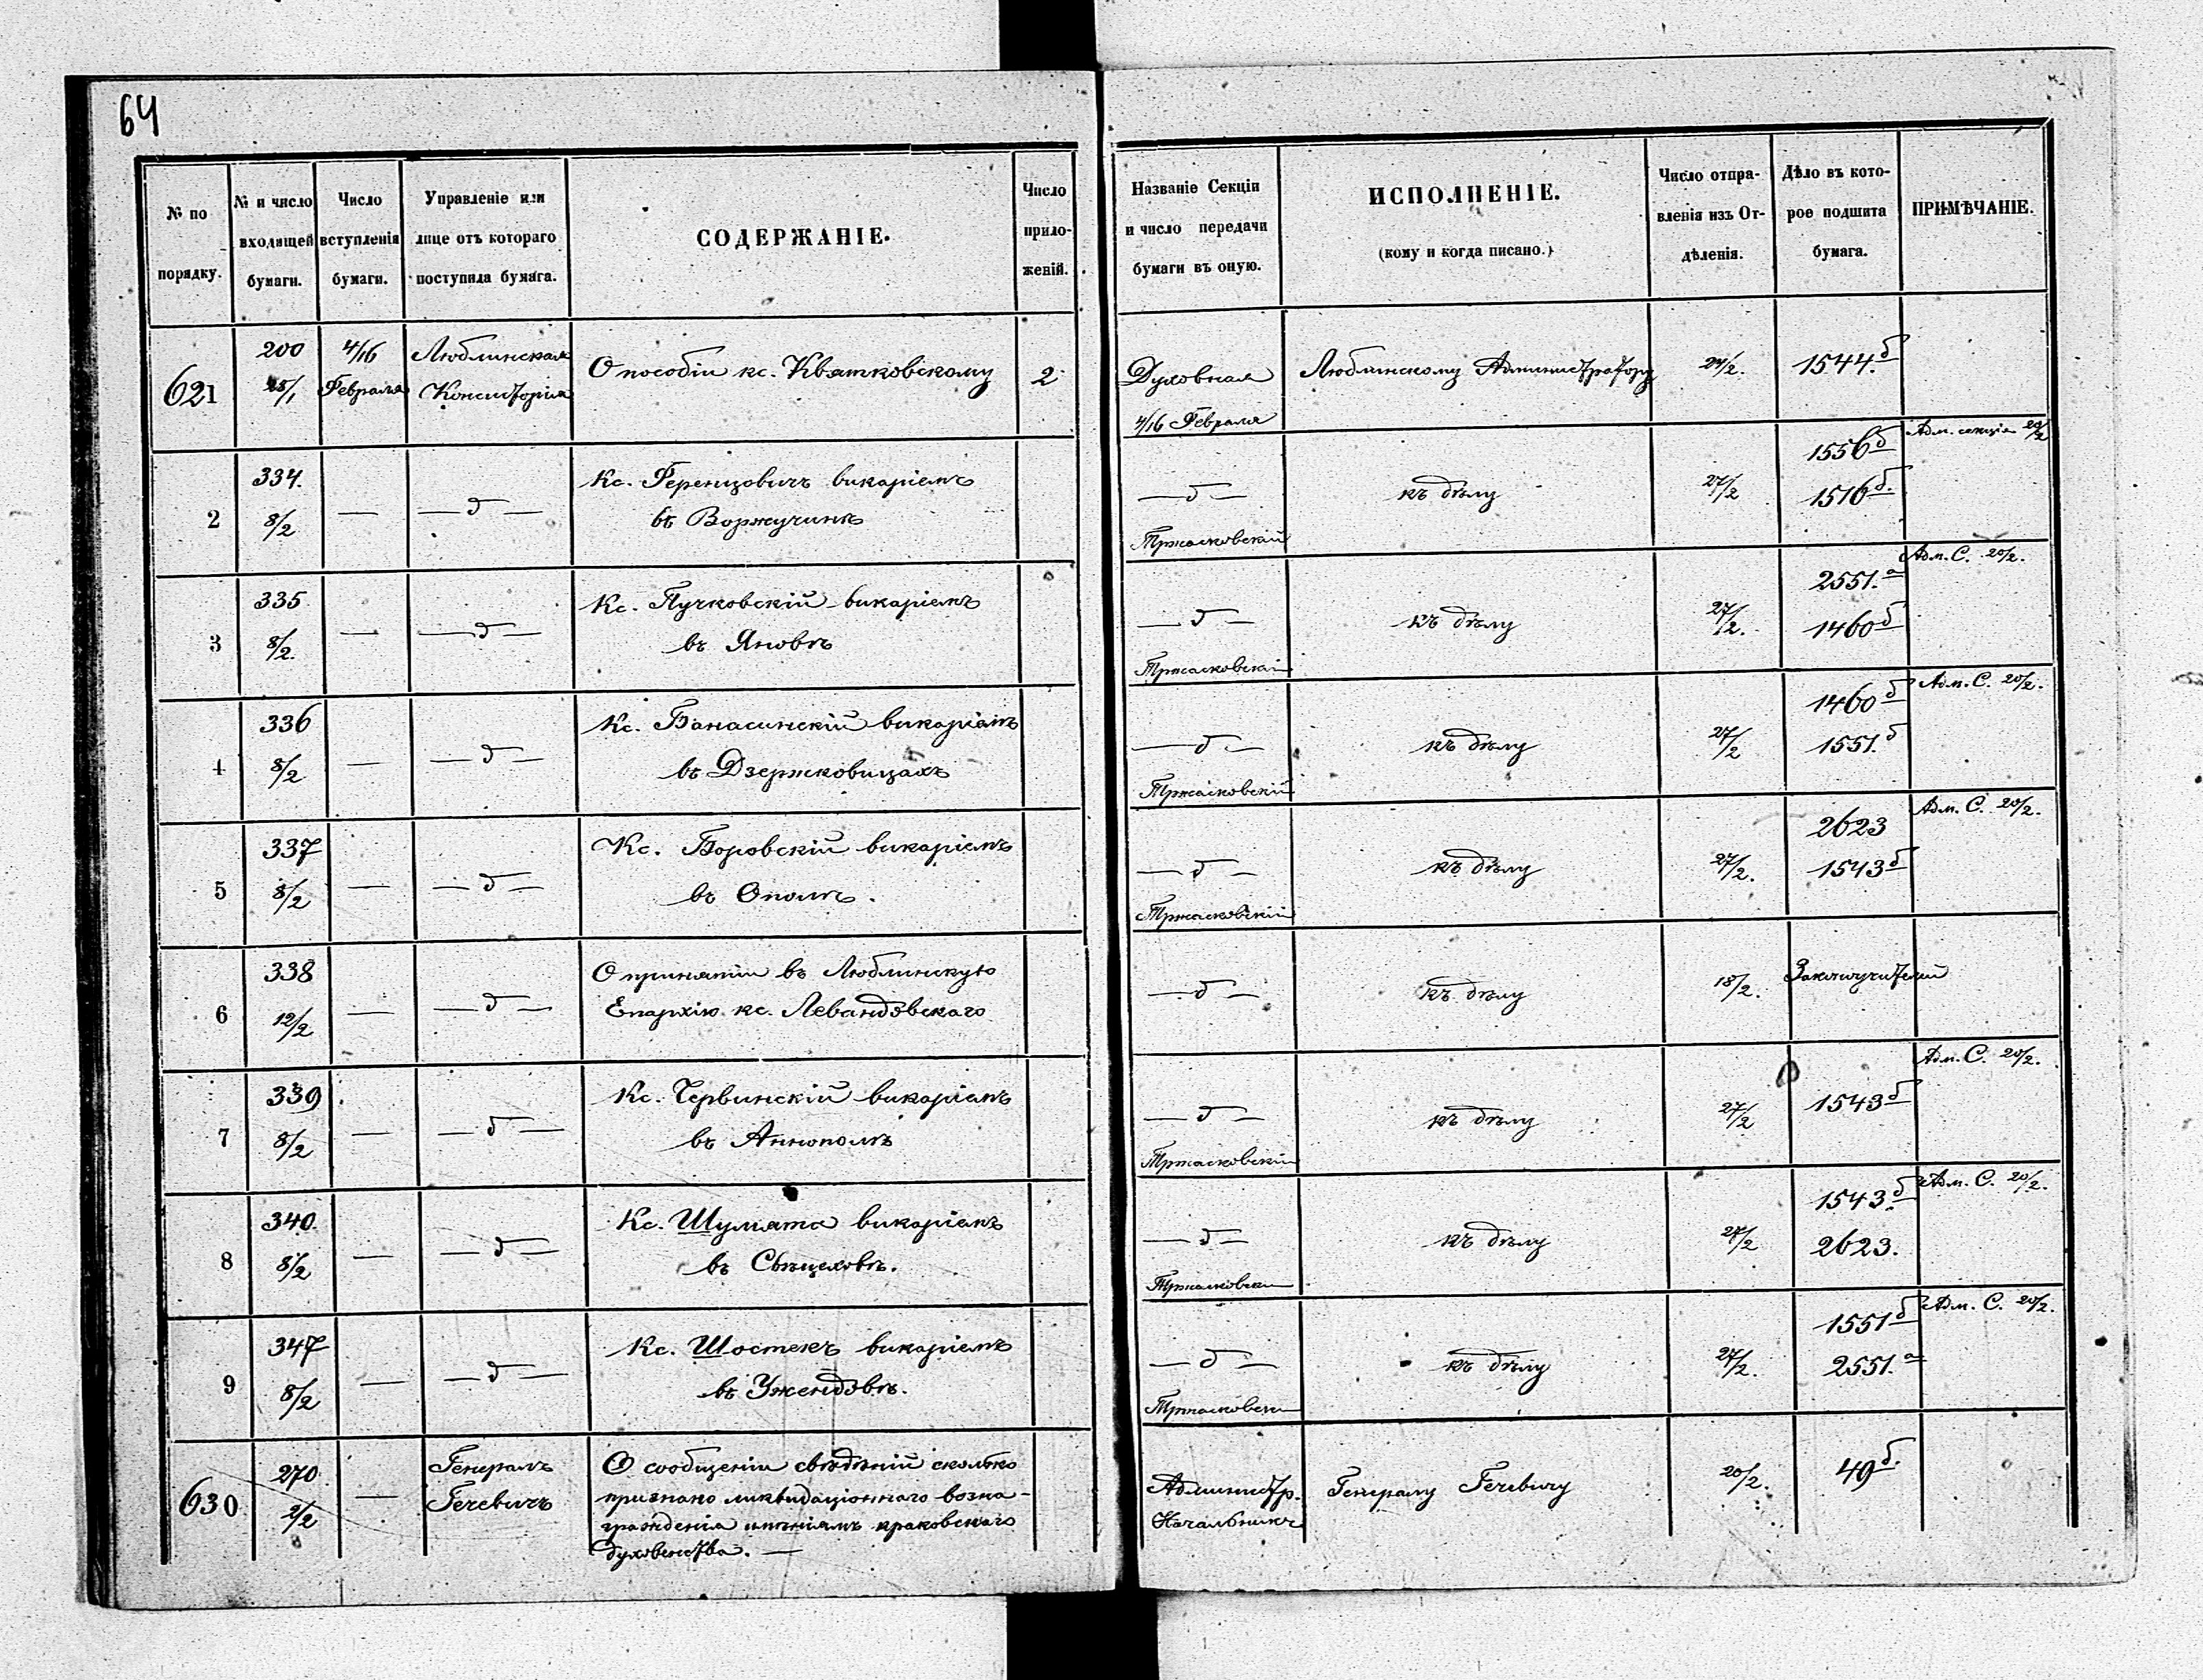 64
№ по порядку.
№ и число входящей бумаги.
Число вступленія бумаги.
Управленіе или лице отъ котораго поступила бумага.
СОДЕРЖАНІЕ.
Число приложеній.
Названіе Секціи и число передачи бумаги въ оную.
ИСПОЛНЕНІЕ.
(кому и когда писано.)
Число отпра-
вленія изъ От-
дѣленія.
Дѣло въ кото-
рое подшита
бумага.
ПРИМѢЧАНІЕ.
621
200
28/1
4/16
Февраля
Люблинская
Консисторія
О пособіи кс. Квятковскому
2
Духовная
4/16 Февраля
Люблинскому Администратору
24/2.
1544.б
2
334.
8/2
— д —
Кс. Ференцовичъ викаріемъ
въ
— д —
Тржасковскій
къ дѣлу
27/2
1556б
1516б.
Адм. секція 20/2
3
335
8/2.
— д —
Кс. Пучковскій викаріемъ
въ Яновѣ
— д —
Тржасковскій
къ дѣлу
27/2.
2551.а
1460б
Адм. С. 20/2.
4
336
8/2
— д —
Кс. Банасинскій викаріемъ
въ Дзержковицахъ
— д —
Тржасковскій
къ дѣлу
27/2
1460б
1551.б
Адм. С. 20/2.
5
337
8/2
— д —
Кс. Боровскій викаріемъ
въ Ополѣ.
— д —
Тржасковскій
къ дѣлу
27/2.
2623
1543б
Адм. С. 20/2.
6
338
12/2
— д —
О принятіи въ Люблинскую
Епархію кс. Левандовскаго
— д —
къ дѣлу
18/2.
7
339
8/2
— д —
Кс. Червинскій викаріемъ
въ Аннополѣ
— д —
Тржасковскій
къ дѣлу
27/2
1543б
Адм. С. 20/2.
8
340.
8/2
— д —
Кс. Шумята викаріемъ
въ Свѣцеховѣ.
— д —
Тржасковскій
къ дѣлу
27/2
1543.б
2623.
Адм. С. 20/2.
9
347
8/2
— д —
Кс. Шостекъ викаріемъ
въ Ужендовѣ.
— д —
Тржасковскій
къ дѣлу
27/2.
1551б
2551.а
Адм. С. 20/2.
630
270
2/2
Генералъ
Гечевичъ
О сообщеніи свѣдѣній сколько
признано ликвидаціоннаго возна-
гражденія имѣніямъ краковскаго
духовенства. —
Администр.
Начальникъ
Генералу Гечевичу
20/2.
49б.